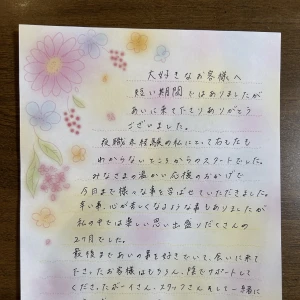 大好きなお客様へ
短い期間ではありましたが
あいに来てたきりありがとう
ございました。
夜職未経験の私にとって右も左も
わからないところからのスタートでした。
みなさまの温かい応援のおかげで
今日まで様々な事を学ばせていただきました。
辛い事、心が苦しくなるような事もありましたが
私の中では楽しい思い出盛りだくさんの
2ヶ月でした。
最後まであいの事を好きでいて、会いに来て
下さったお客様はもちろん、陰でサポートして
くださったボーイさん、スタッフさん、そして一緒に